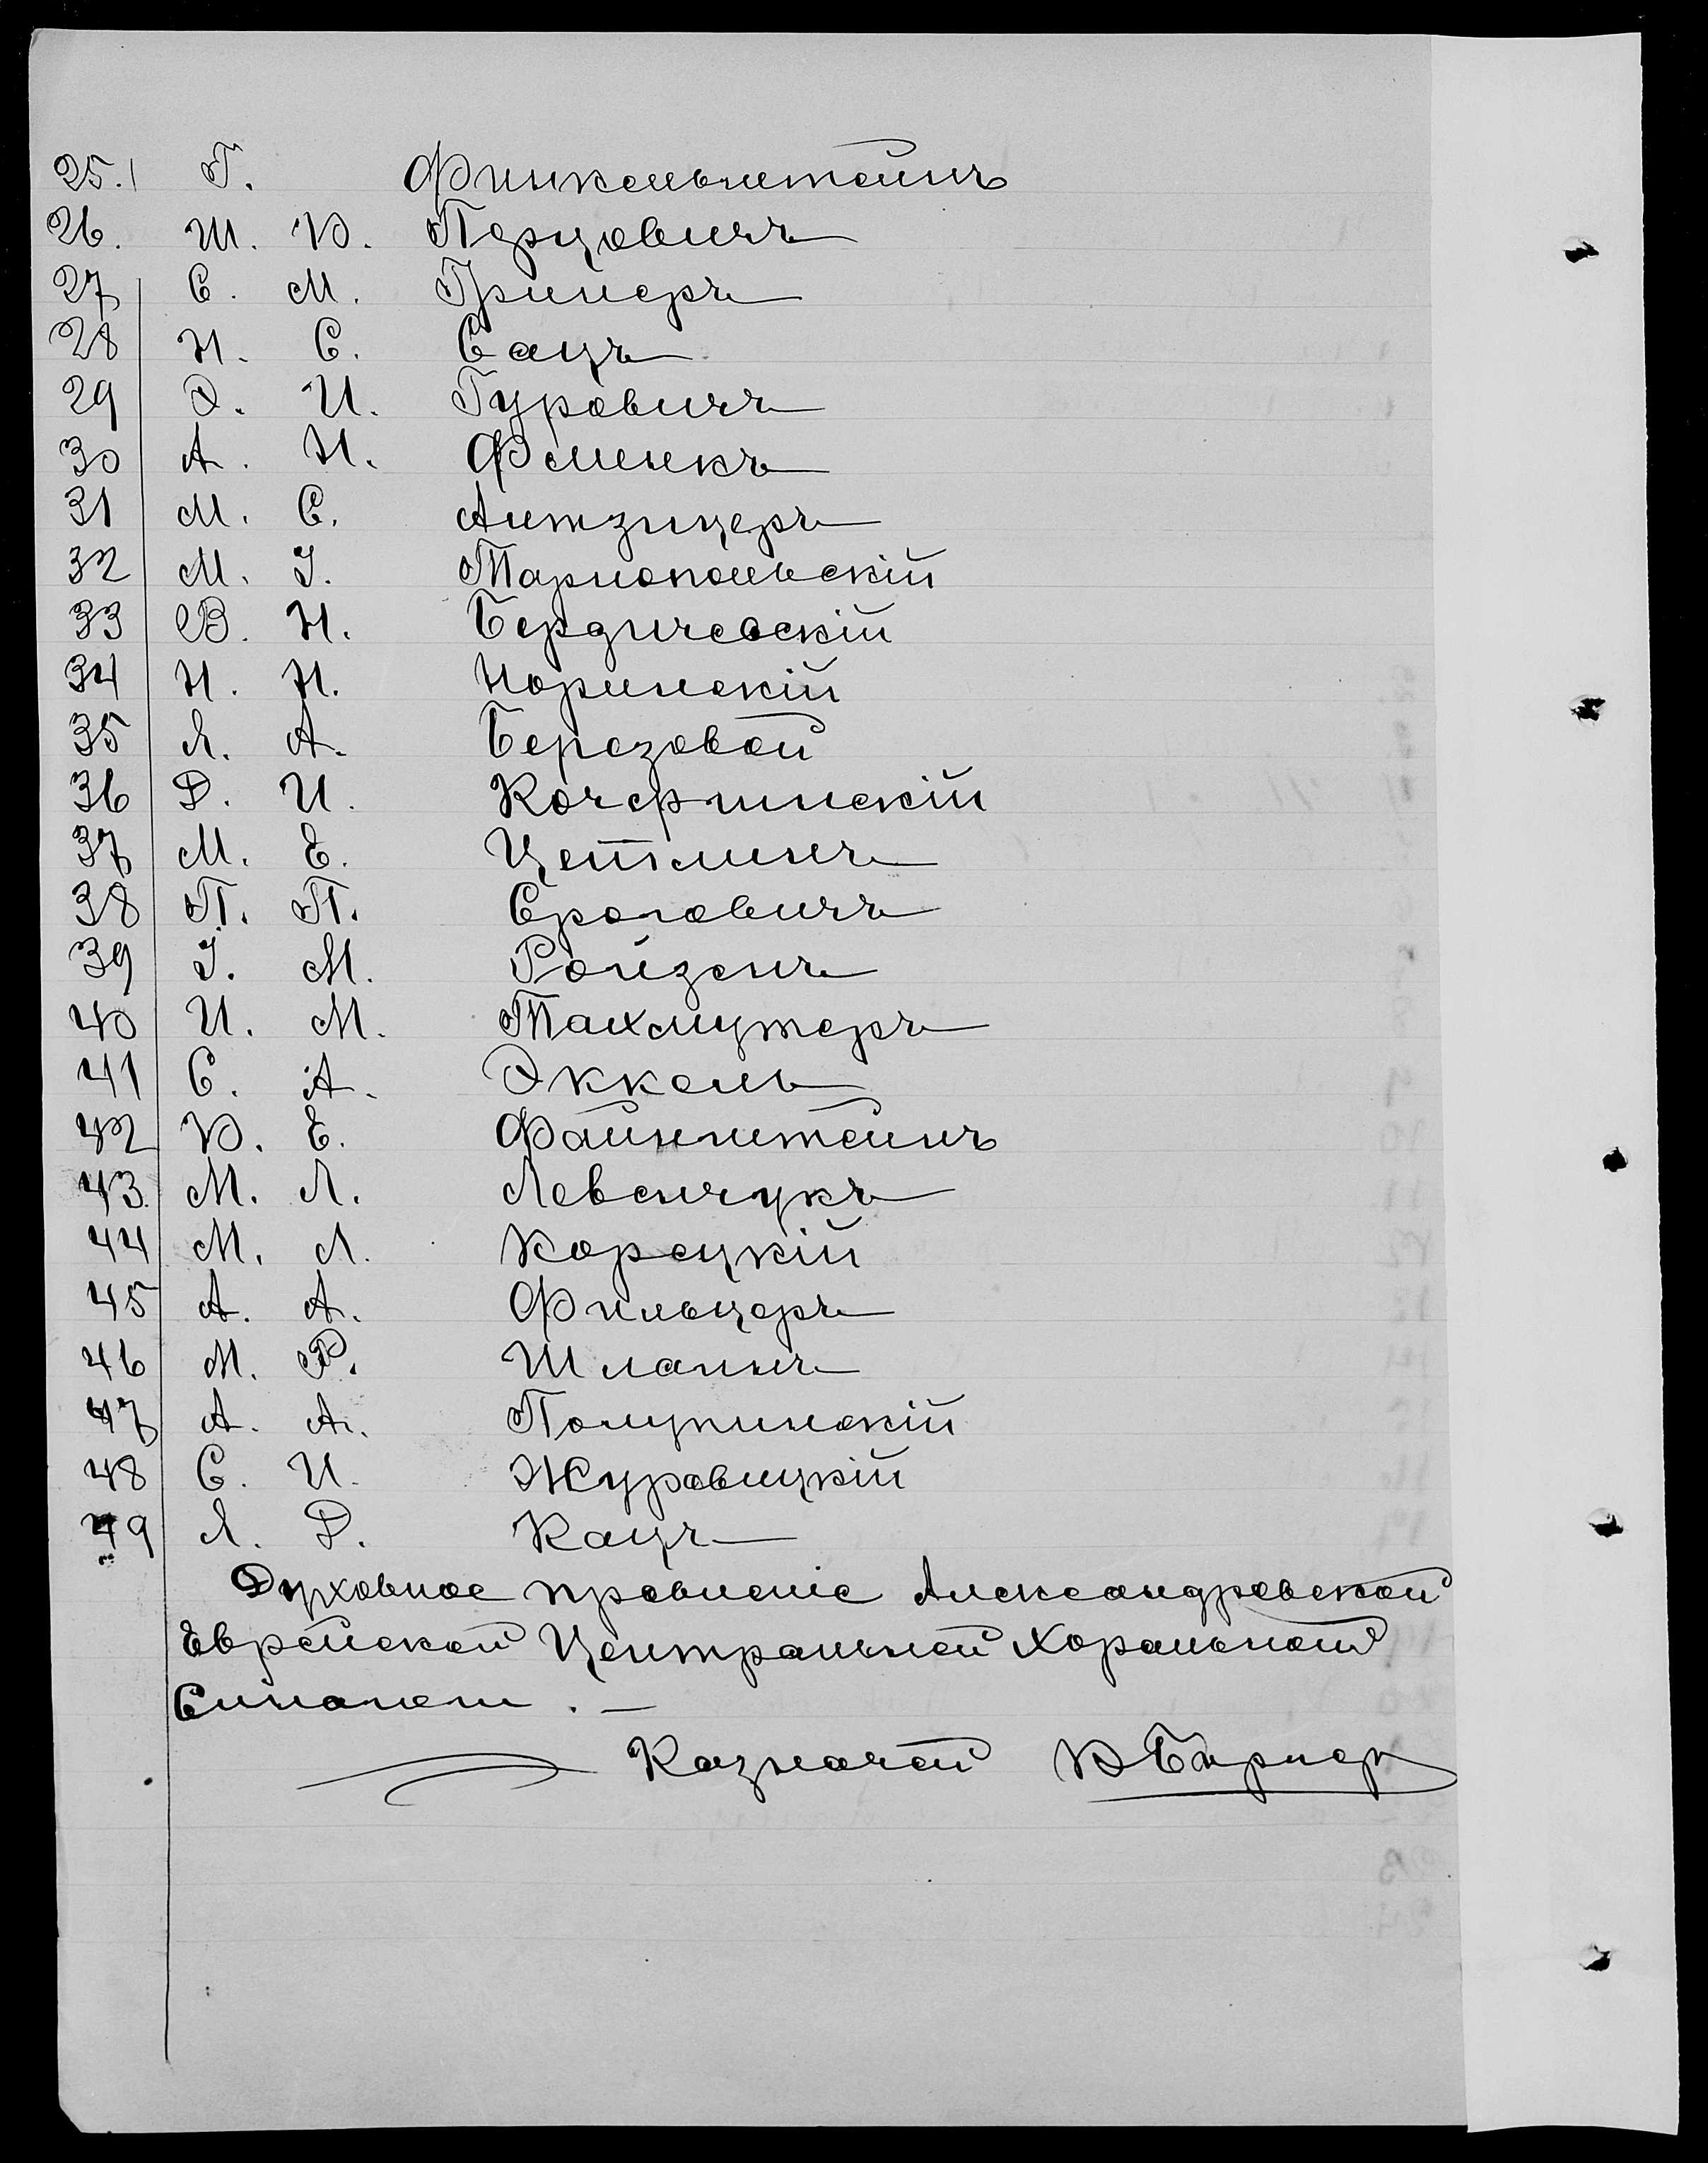 25. Г. Финкельштейнъ
26. Ш. Ю. Перцовичъ
27 С. М. Гринеръ
28 Н. С. Сацъ
29 Э. И. Гуровичъ
30 А. Н. Фленкъ
31 М. С. Антзицеръ
32 М. І. Тарнопольскій
33 В. Н. Бердичевскій
34 Н. Н. Норинскій
35 Я. А. Березовой
36 Д. И. Кочержинскій
37 М. Е. Цетлинъ
38 П. П. Сроговичъ
39 І. М. Ройзенъ
40 И. М. Талхмутеръ
41 С. А. Эккель
42 Ю. Е. Файнштейнъ
43. М. Л. Левенчукъ
44 М. Л. Корецкій
45 А. А. Фильцеръ
46 М. Р. Шлапинъ
47 А. А. Полупинскій
48 С. И. Журавицкій
49 Я. Д. Кацъ
Духовное правленіе Александровской
Еврейской Центральной Хоральной
Синагоги. —
Казначей